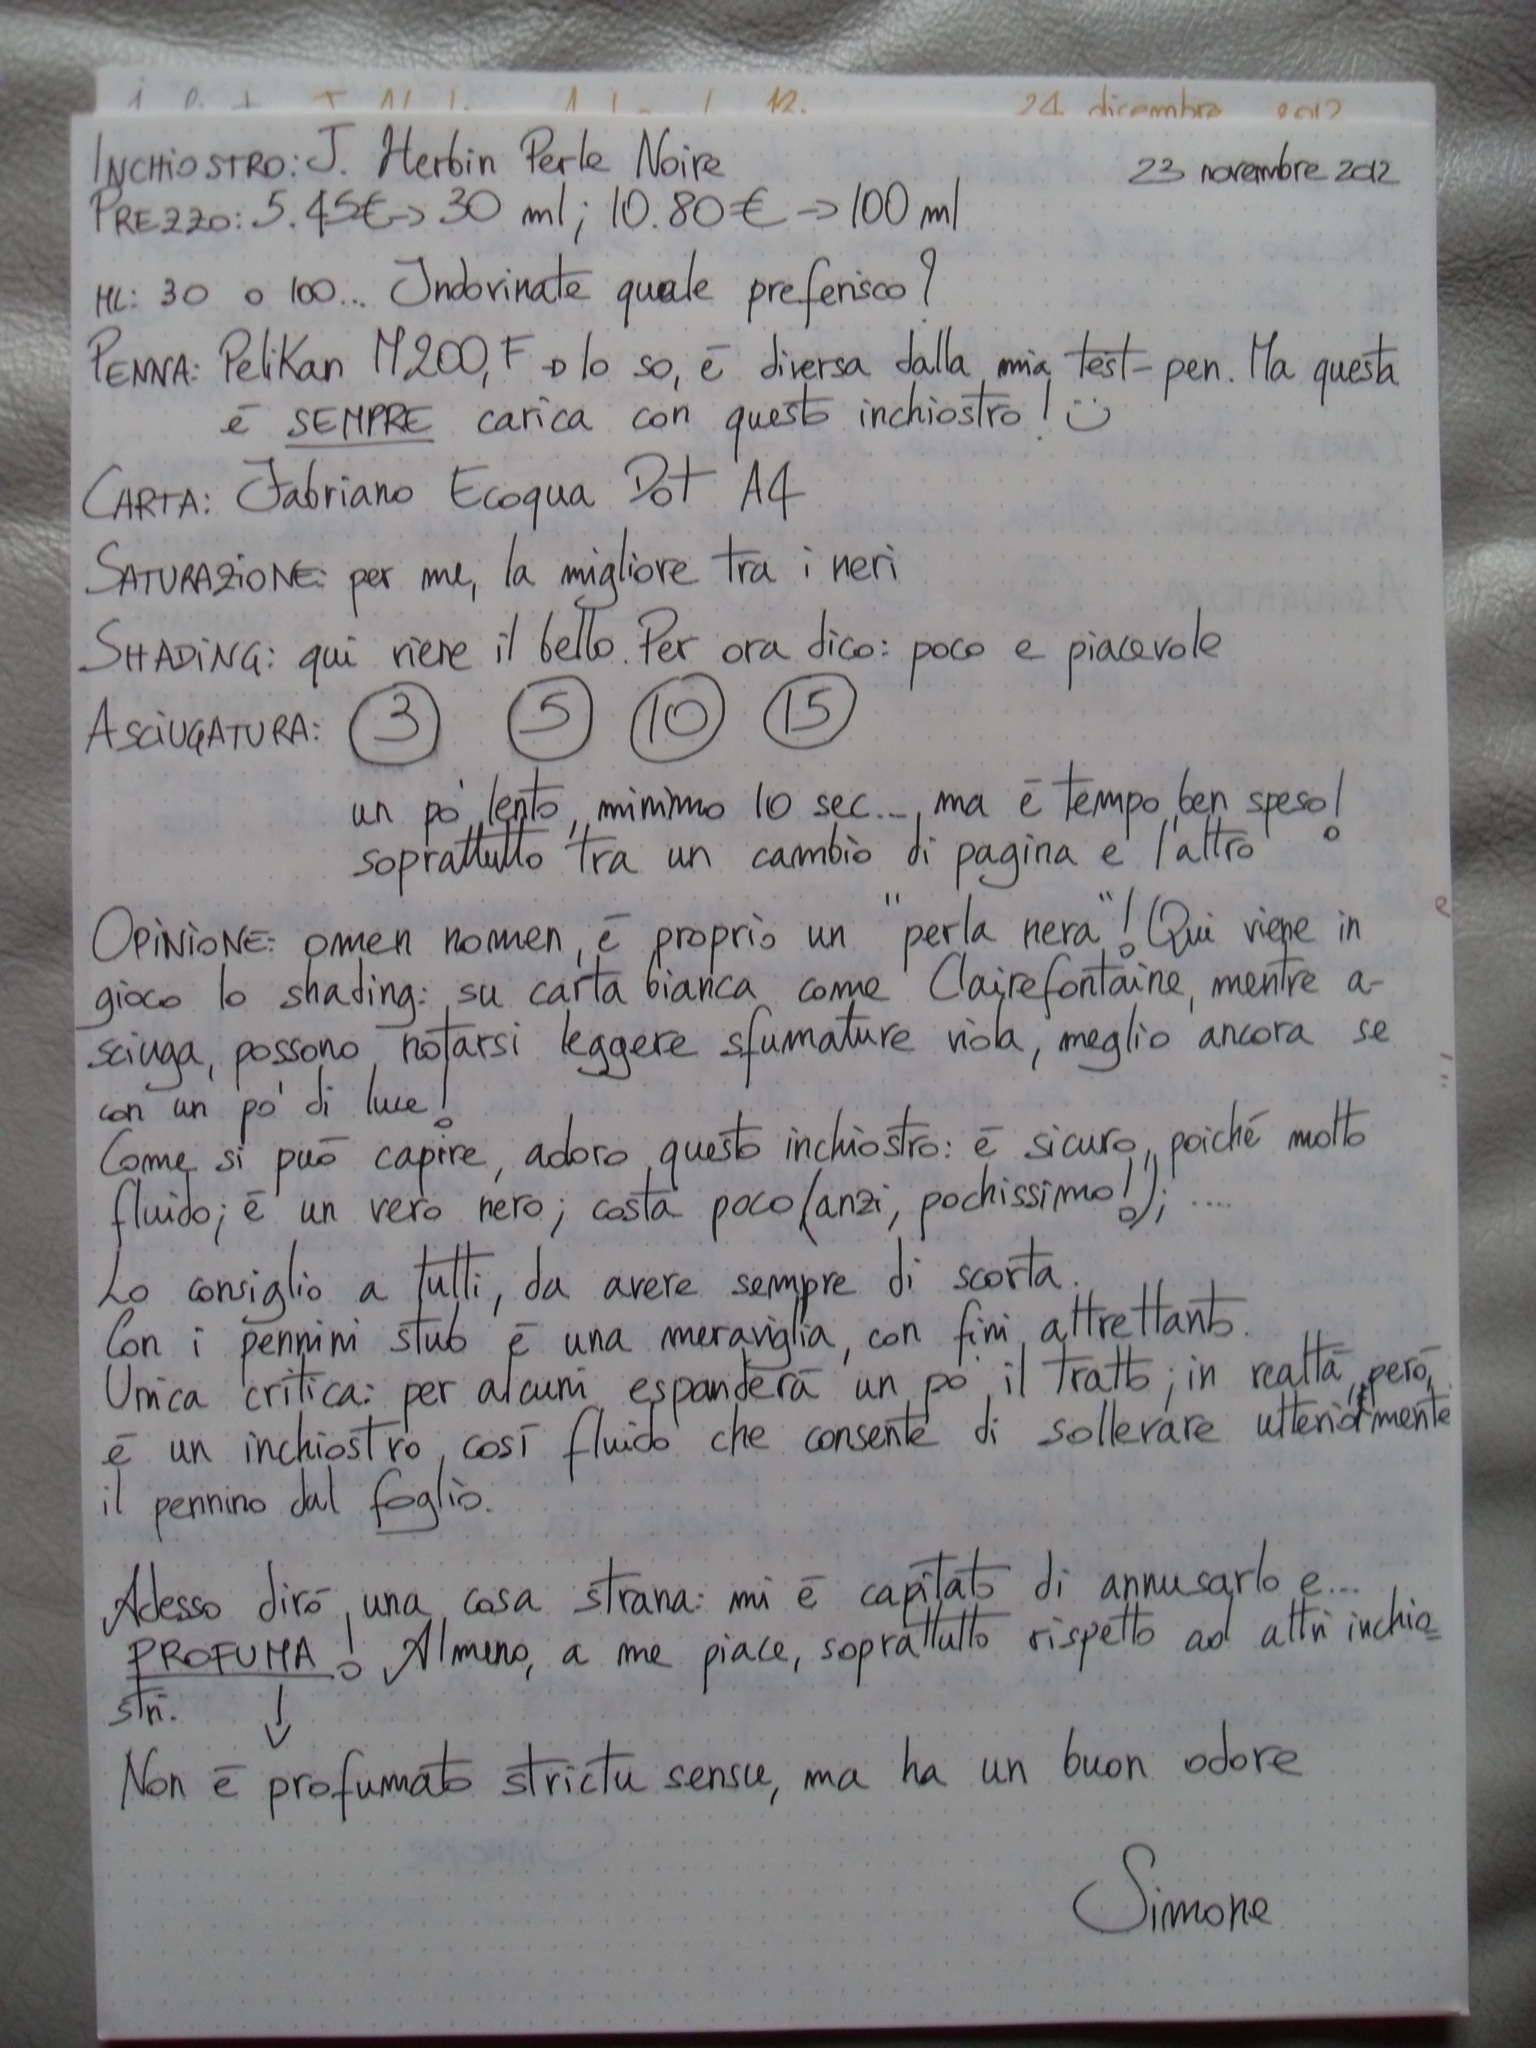 24 dicembre 2012
INCHIOSTRO: J. Herbin Perle Noire 23 novembre 2012
PREZZO: 5.45€ → 30 ml; 10.80€ → 100 ml
ML: 30 o 100... Indovinate quale preferisco?
PENNA: Pelikan M200, F → lo so, è diversa dalla mia test-pen. Ma questa
è SEMPRE carica con questo inchiostro! :)
CARTA: Fabriano Ecoqua Dot A4
SATURAZIONE: per me, la migliore tra i neri
SHADING: qui viene il bello. Per ora dico: poco e piacevole
ASCIUGATURA: 3 5 10 15
un po' lento, minimo 10 sec..., ma è tempo ben speso!
soprattutto tra un cambio di pagina e l'altro
OPINIONE: omen nomen, è proprio un "perla nera"! Qui viene in
gioco lo shading: su carta bianca come Clairefontaine, mentre a-
sciuga, possono notarsi leggere sfumature viola, meglio ancora se
con un po' di luce!
Come si può capire, adoro questo inchiostro: è sicuro, poiché molto
fluido; è un vero nero; costa poco (anzi, pochissimo!); ....
Lo consiglio a tutti, da avere sempre di scorta.
Con i pennini stub è una meraviglia, con fini altrettanto.
Unica critica: per alcuni espanderà un po' il tratto; in realtà, però,
è un inchiostro così fluido che consente di sollevare ulteriormente
il pennino dal foglio.
Adesso dirò una cosa strana: mi è capitato di annusarlo e...
PROFUMA! Almeno, a me piace, soprattutto rispetto ad altri inchio=
stri. ↓
Non è profumato strictu sensu, ma ha un buon odore
Simone